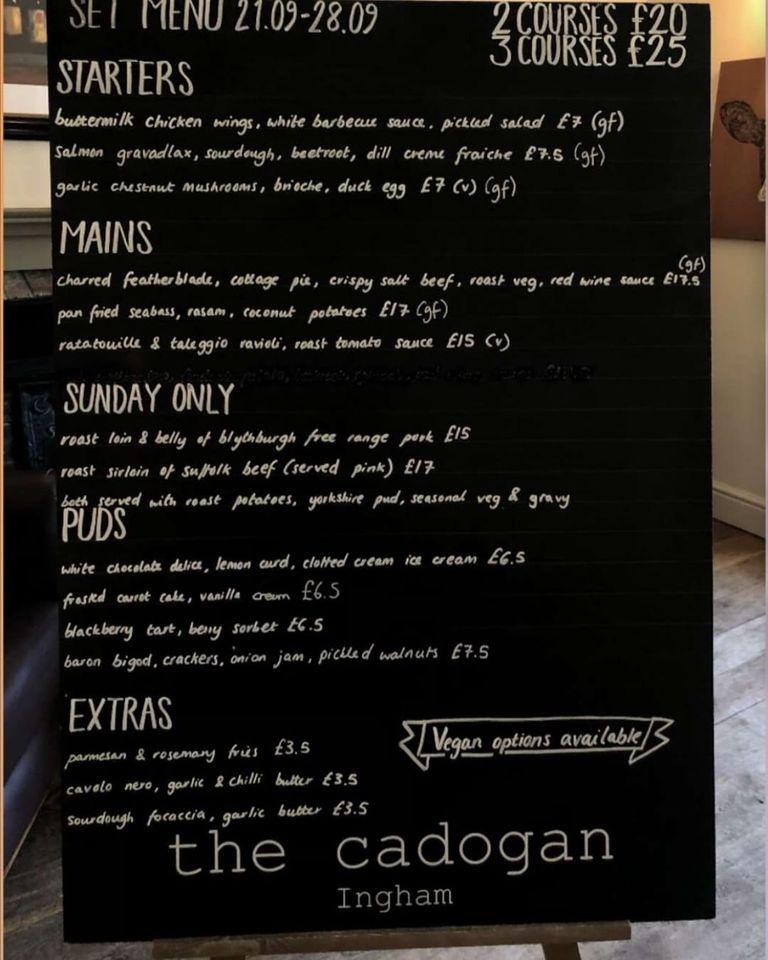 SET MENU 21.09-28.09
2 COURSES £20
3 COURSES £25
STARTERS
buttermilk chicken wings, white barbecue sauce, pickled salad £7 (gf)
salmon gravadlax, sourdough, beetroot, dill creme fraiche £7.5 (gf)
garlic chestnut mushrooms, brioche, duck egg £7 (v) (gf)
MAINS
(gf)
charred featherblade, cottage pie, crispy salt beef, roast veg, red wine sauce £17.5
pan fried seabass, rasam, coconut potatoes £17 (gf)
ratatouille & taleggio ravioli, roast tomato sauce £15 (v)
SUNDAY ONLY
roast loin & belly of blythburgh free range pork £15
roast sirloin of suffolk beef (served pink) £17
both served with roast potatoes, yorkshire pud, seasonal veg & gravy
PUDS
white chocolate delice, lemon curd, clotted cream ice cream £6.5
frosted carrot cake, vanilla cream £6.5
blackberry tart, berry sorbet £6.5
baron bigod, crackers, onion jam, pickled walnuts £7.5
EXTRAS
parmesan & rosemary fries £3.5
cavolo nero, garlic & chilli butter £3.5
sourdough focaccia, garlic butter £3.5
Vegan options available
the cadogan
Ingham